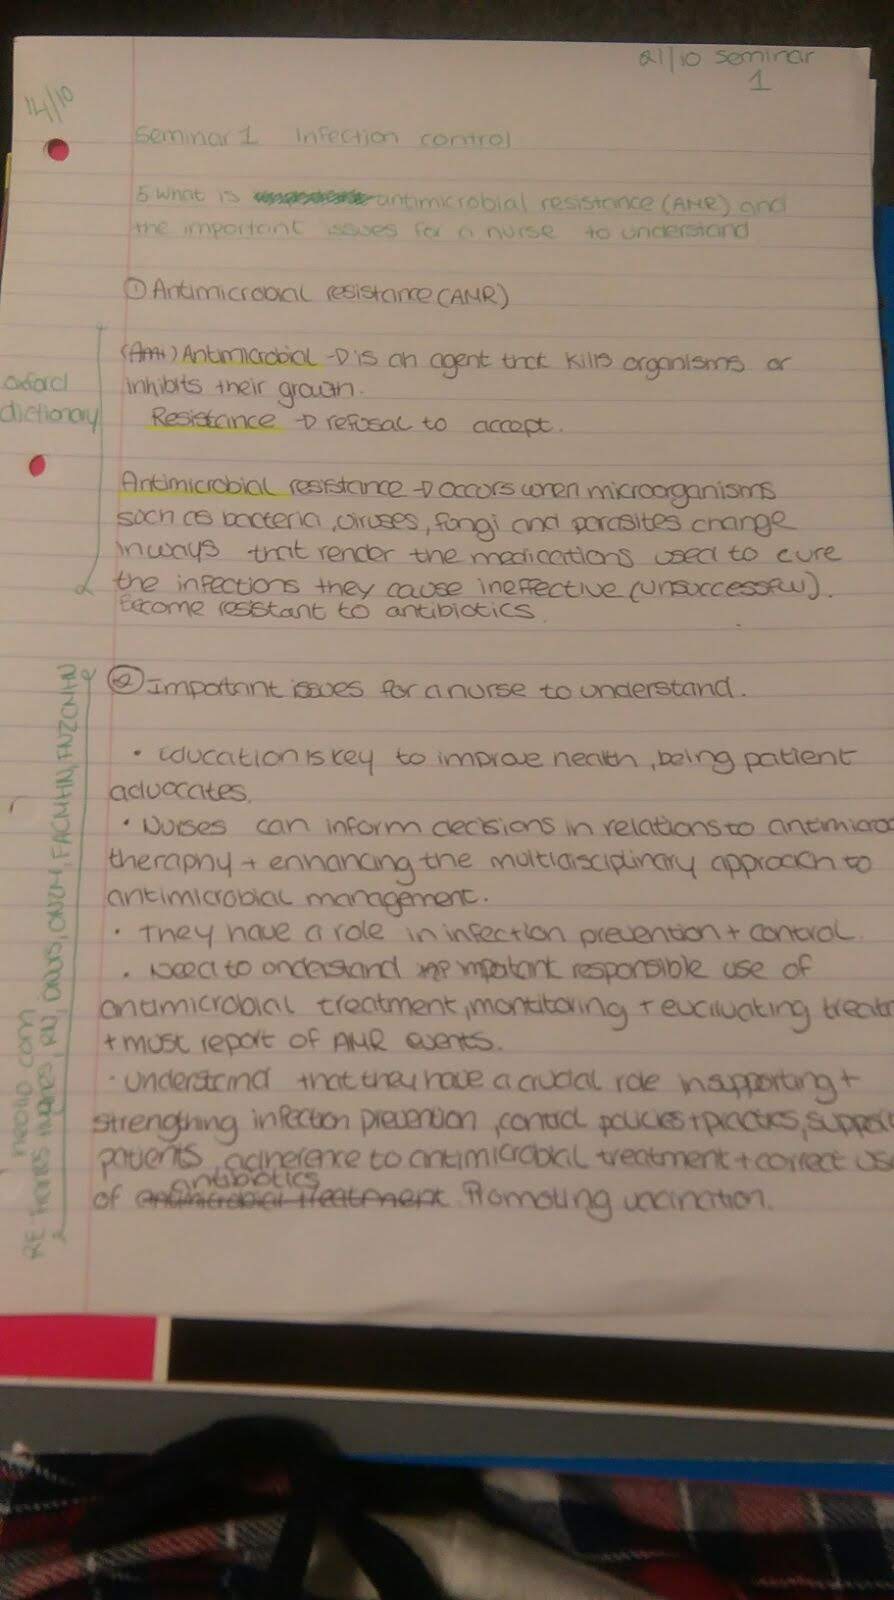 21/10 seminar
1
14/10
Seminar 1 Infection control
5 What is antimicrobial resistance (AMR) and
the important issues for a nurse to understand
① Antimicrobial resistance (AMR)
Antimicrobial → is an agent that kills organisms or
inhibits their growth.
Resistance → refusal to accept.
oxford
dictionary
Antimicrobial resistance → occurs when microorganisms
such as bacteria, viruses, fungi and parasites change
in ways that render the medications used to cure
the infections they cause ineffective (unsuccessful).
Become resistant to antibiotics.
② Important issues for a nurse to understand.
• Education is key to improve health, being patient
advocates.
• Nurses can inform decisions in relations to antimicro
theraphy + enhancing the multidisciplinary approach to
antimicrobial management.
• They have a role in infection prevention + control.
• Need to understand important responsible use of
antimicrobial treatment, montitoring + evaluating treat
+ must report of AMR events.
• Understand that they have a crucial role in supporting +
strengthing infection prevention, control policies + practices, suppor
patients adherence to antimicrobial treatment + correct us
of antibiotics. Promoting vaccination.
RE: Frances Hughes, RN, ONZM, FACMHN, FNZCMHN